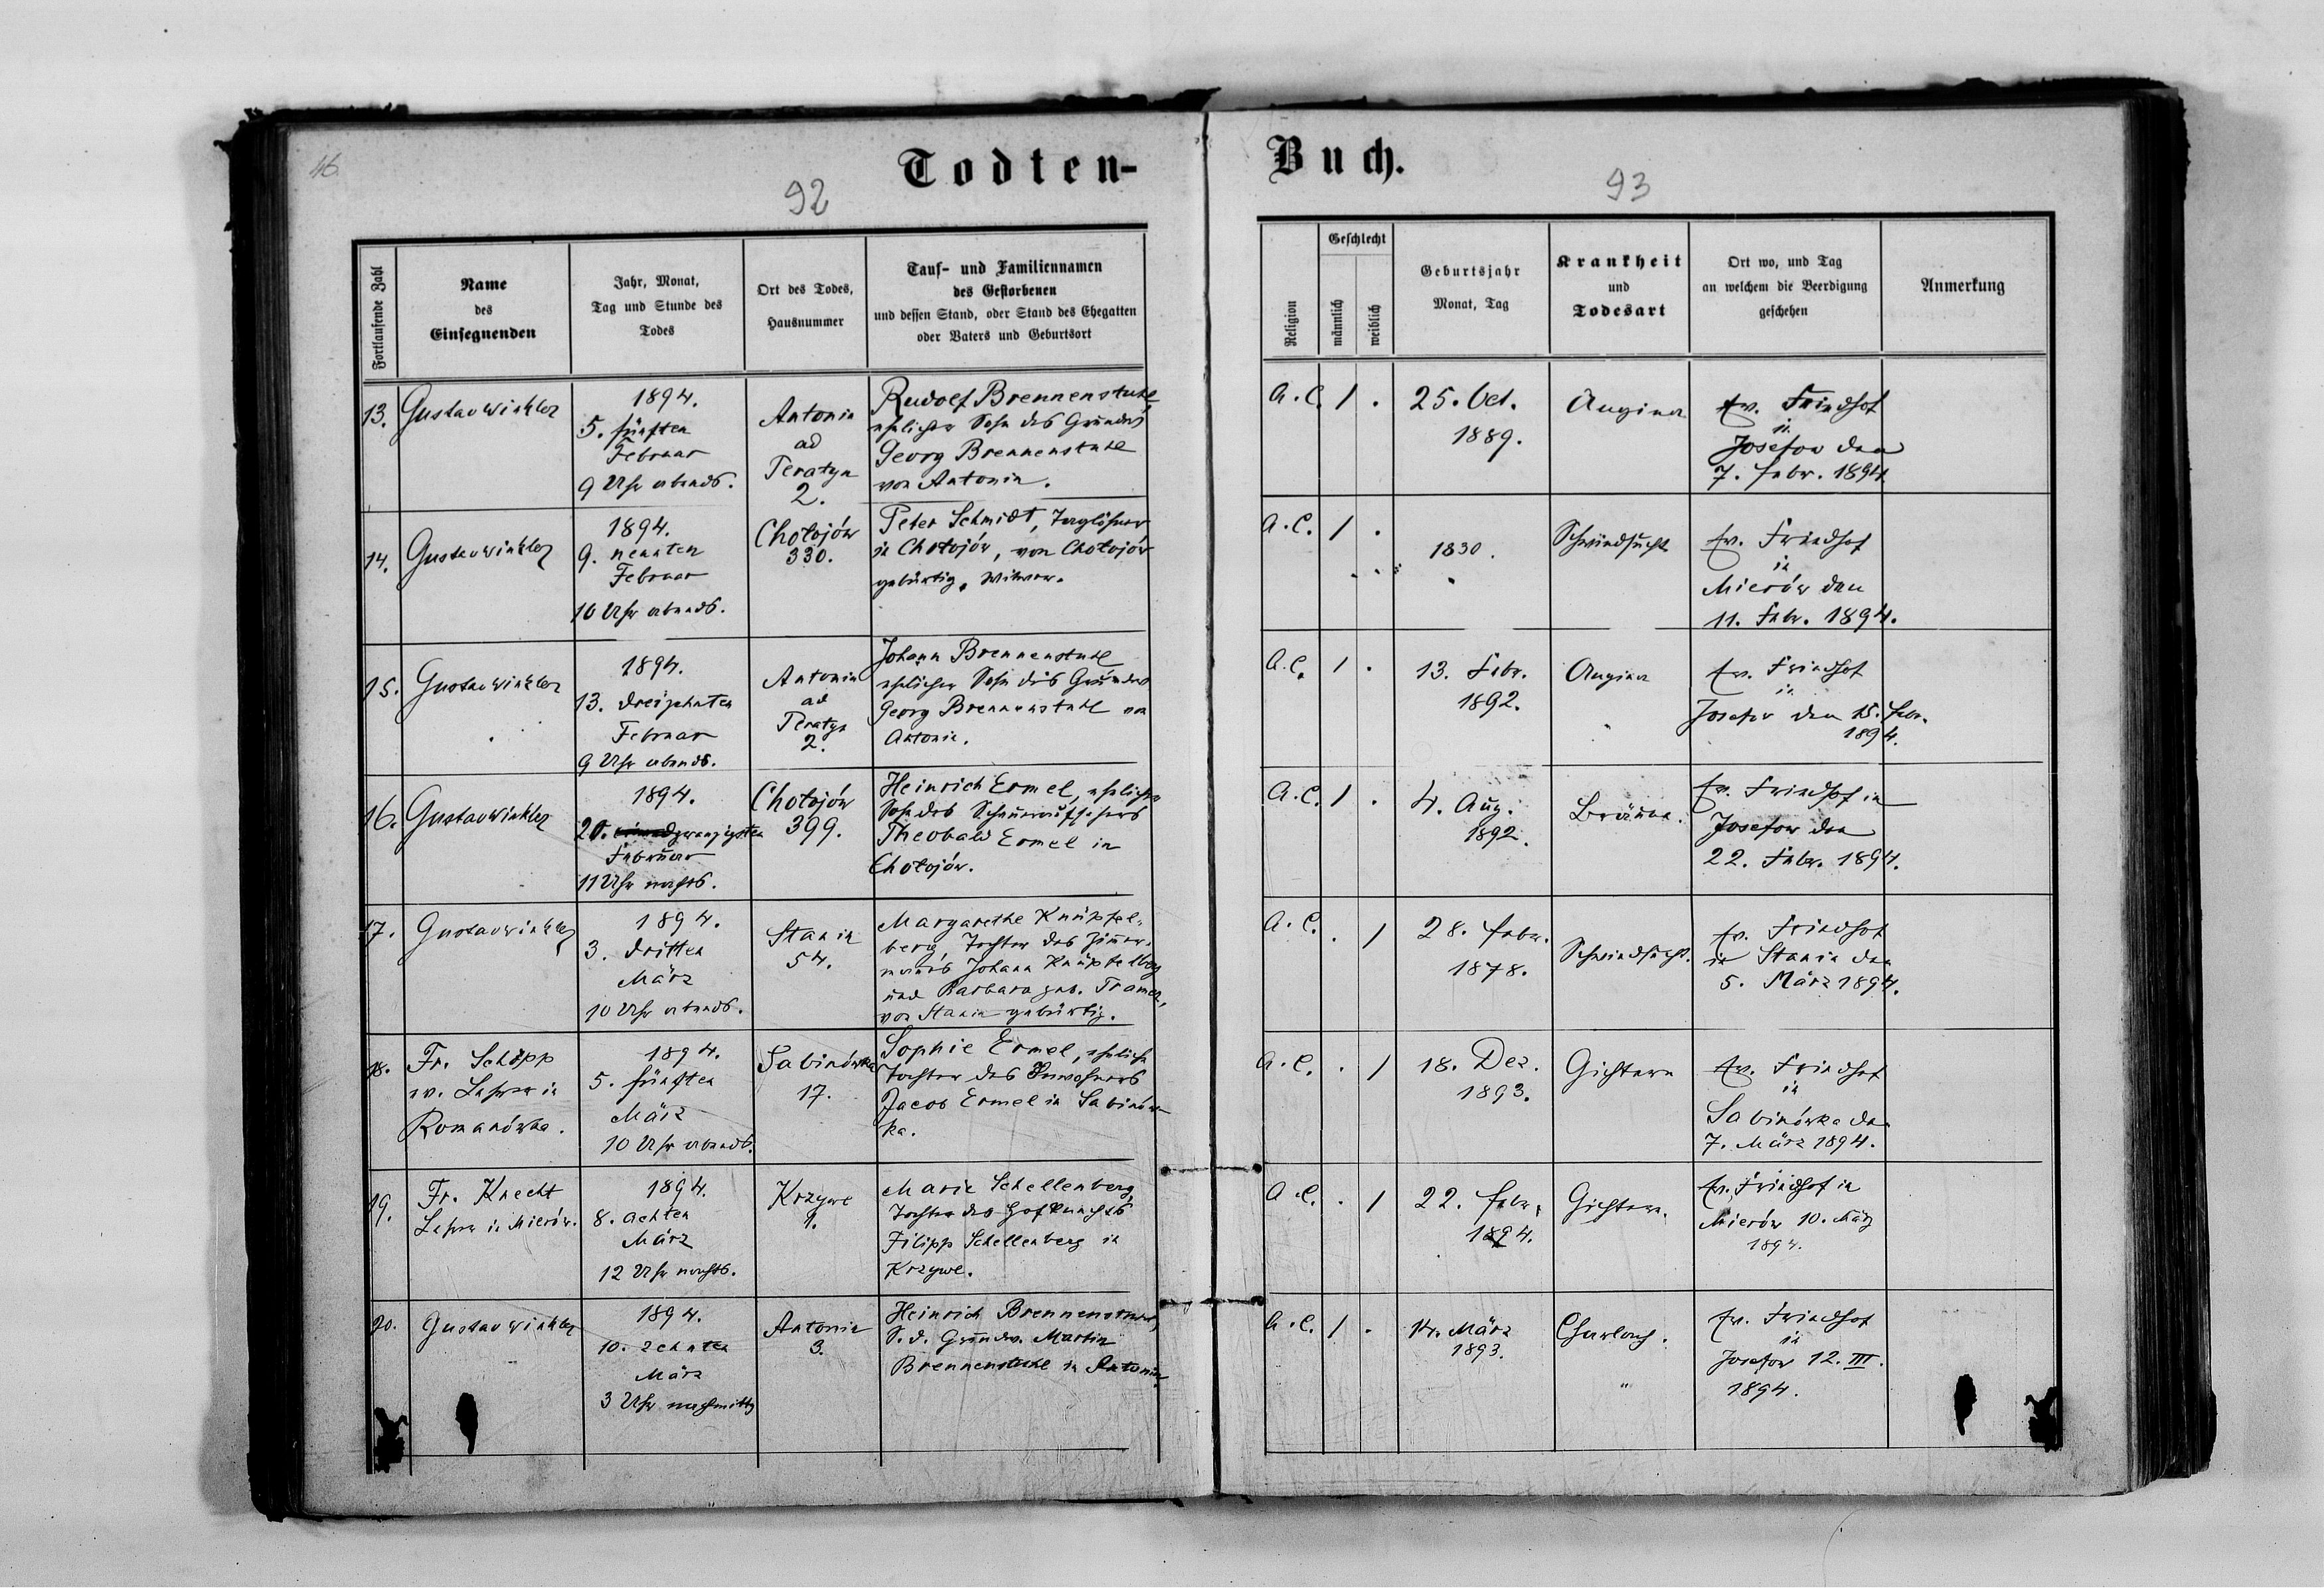 46.
Todten-
92
Fortlaufende Zahl
Name
des
Einsegnenden
Jahr, Monat,
Tag und Stunde des
Todes
Ort des Todes,
Hausnummer
Tauf- und Familiennamen
des Gestorbenen
und dessen Stand, oder Stand des Ehegatten
oder Vaters und Geburtsort
13.
Gustav Winkler
1894.
5. fünften
Februar
9 Uhr abends.
Antonin
ad
Peratyn
2.
Rudolf Brennenstuhl,
ehelicher Sohn des Grundw.
Georg Brennenstuhl
von Antonin.
14.
Gustav Winkler
1894.
9. neunten
Februar
10 Uhr abends.
Chołojów
330.
Peter Schmidt, Taglöhner
in Chołojów, von Chołojów
gebürtig, Witwer.
15.
Gustav Winkler
1894.
13. dreizehnten
Februar
9 Uhr abends.
Antonin
ad
Peratyn
2.
Johann Brennenstuhl
ehelicher Sohn des Grundw.
Georg Brennenstuhl von
Antonin.
16.
Gustav Winkler
1894.
20. zwanzigsten
Februar
11 Uhr nachts.
Chołojów
399.
Heinrich Ermel, ehelicher
Sohn des
Theobald Ermel in
Chołojów.
17.
Gustav Winkler
1894.
3. dritten
März
10 Uhr abends.
Stanin
54.
Margarethe Knüpfel-
berg, Tochter des Zimmer-
manns Johann Knüpfelberg
und Barbara geb. Tramer,
von Stanin gebürtig.
18.
Fr. Schöpp
ev. Lehrer in
Romanówka.
1894.
5. fünften
März
10 Uhr abends.
Sabinówka
17.
Sophie Ermel, eheliche
Tochter des Inwohners
Jacob Ermel in Sabinów-
ka.
19.
Fr. Knecht
Lehrer in Mierów.
1894.
8. achten
März
12 Uhr nachts.
Krzywe
1.
Marie Schellenberg,
Tochter des Hofknechts
Filipp Schellenberg in
Krzywe.
20.
Gustav Winkler
1894.
10. zehnten
März
3 Uhr nachmittg
Antonin
3.
Heinrich Brennenstuhl,
S. d. Grundw. Martin
Brennenstuhl in Antonin.
Buch.
93
Religion
Geschlecht
männlich
weiblich
Geburtsjahr
Monat, Tag
Krankheit
und
Todesart
Ort wo, und Tag
an welchem die Beerdigung
geschehen
Anmerkung
A. C.
1
.
25. Oct.
1889.
Angina
Ev. Friedhof
in
Josefow den
7. Febr. 1894
A. C.
1
.
1830.
Schwindsucht
Ev. Friedhof
in
Mierów den
11. Febr. 1894.
A. C.
1
.
13. Febr.
1892.
Angina
Ev. Friedhof
in
Josefow den 15. Febr.
1894.
A. C.
1
.
4. Aug.
1892.
Bräune.
Ev. Friedhof in
Josefow den
22. Febr. 1894.
A. C.
.
1
28. Febr.
1878.
Schwindsucht.
Ev. Friedhof
in Stanin den
5. März 1894.
A. C.
.
1
18. Dez.
1893.
Gichtern
Ev. Friedhof
in
Sabinówka den
7. März 1894.
A. C.
.
1
22. Febr.
1894.
Gichtern.
Ev. Friedhof in
Mierów 10. März
1894.
A. C.
1
.
14. März
1893.
Charlach.
Ev. Friedhof
in
Josefow 12. III.
1894.